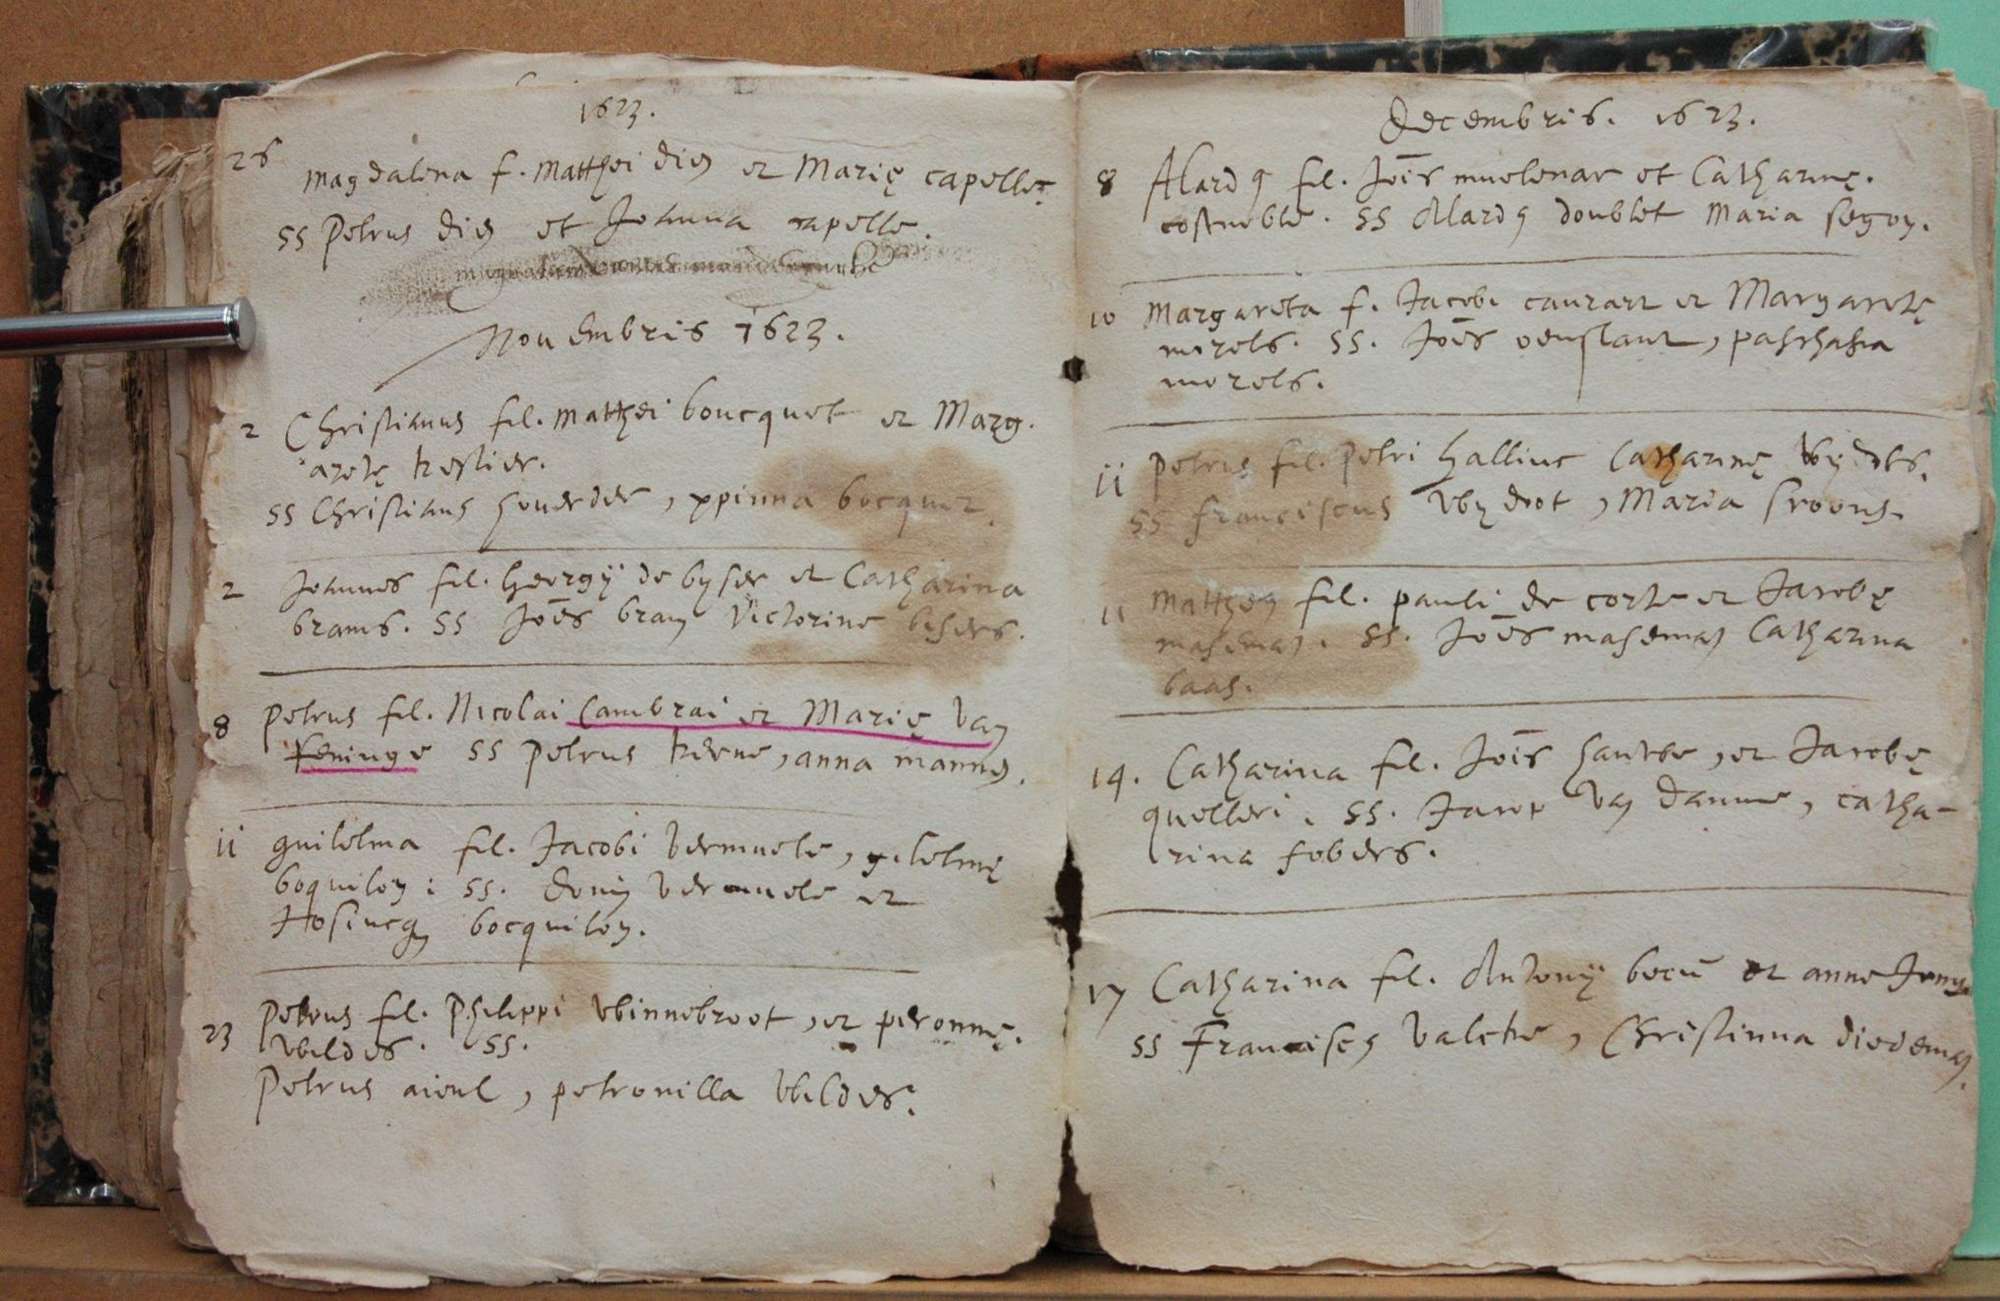 1623.
26 Magdalena f. Matthei dieȝ et Marię capelle.
ss Petrus dieȝ et Joanna capelle.
Novembris 1623.
2 Christianus fil. Matthei boucquet et Marg.
aretę testier.
ss Christianus, xpinna bocquet.
2 Joannes fil. Georgij de byser et Catharina
brams. ss Joēs bram Victorine bisers.
8 Petrus fil. Nicolai Cambrai et Marię Van
Keninge ss Petrus, anna mannes.
ii guilelma fil. Jacobi Vermuele, gilelmę
boquiloy: ss. Vermuele et
bocquiloy.
23 Petrus fil. Philippi Winnebroot, et peronnę.
Wildes. ss.
Petrus aieul, petronilla Wildes.
Decembris. 1623.
8 Alardꝰ fil. Joīs muelenar et Catharinę.
costnoble. ss Alardꝰ doublet Maria segon.
10 Margareta f. Jacobi caurart et Margaretę
morels. ss. Joēs, paschasia
morels.
ii Petrus fil. Petri Catharinę Wydots.
ss franciscus Wydoot, Maria
11 Mattheꝰ fil. pauli de corte et Jacobę
maseman. ss. Joēs maseman Catharina
baas.
14. Catharina fil. Joīs, et Jacobę
quelleri. ss. Jacop Van Damme, catha-
rina fobers.
17 Catharina fil. Antonij becū et anne
ss Franciscꝰ Valcke, Christinna dieveman.